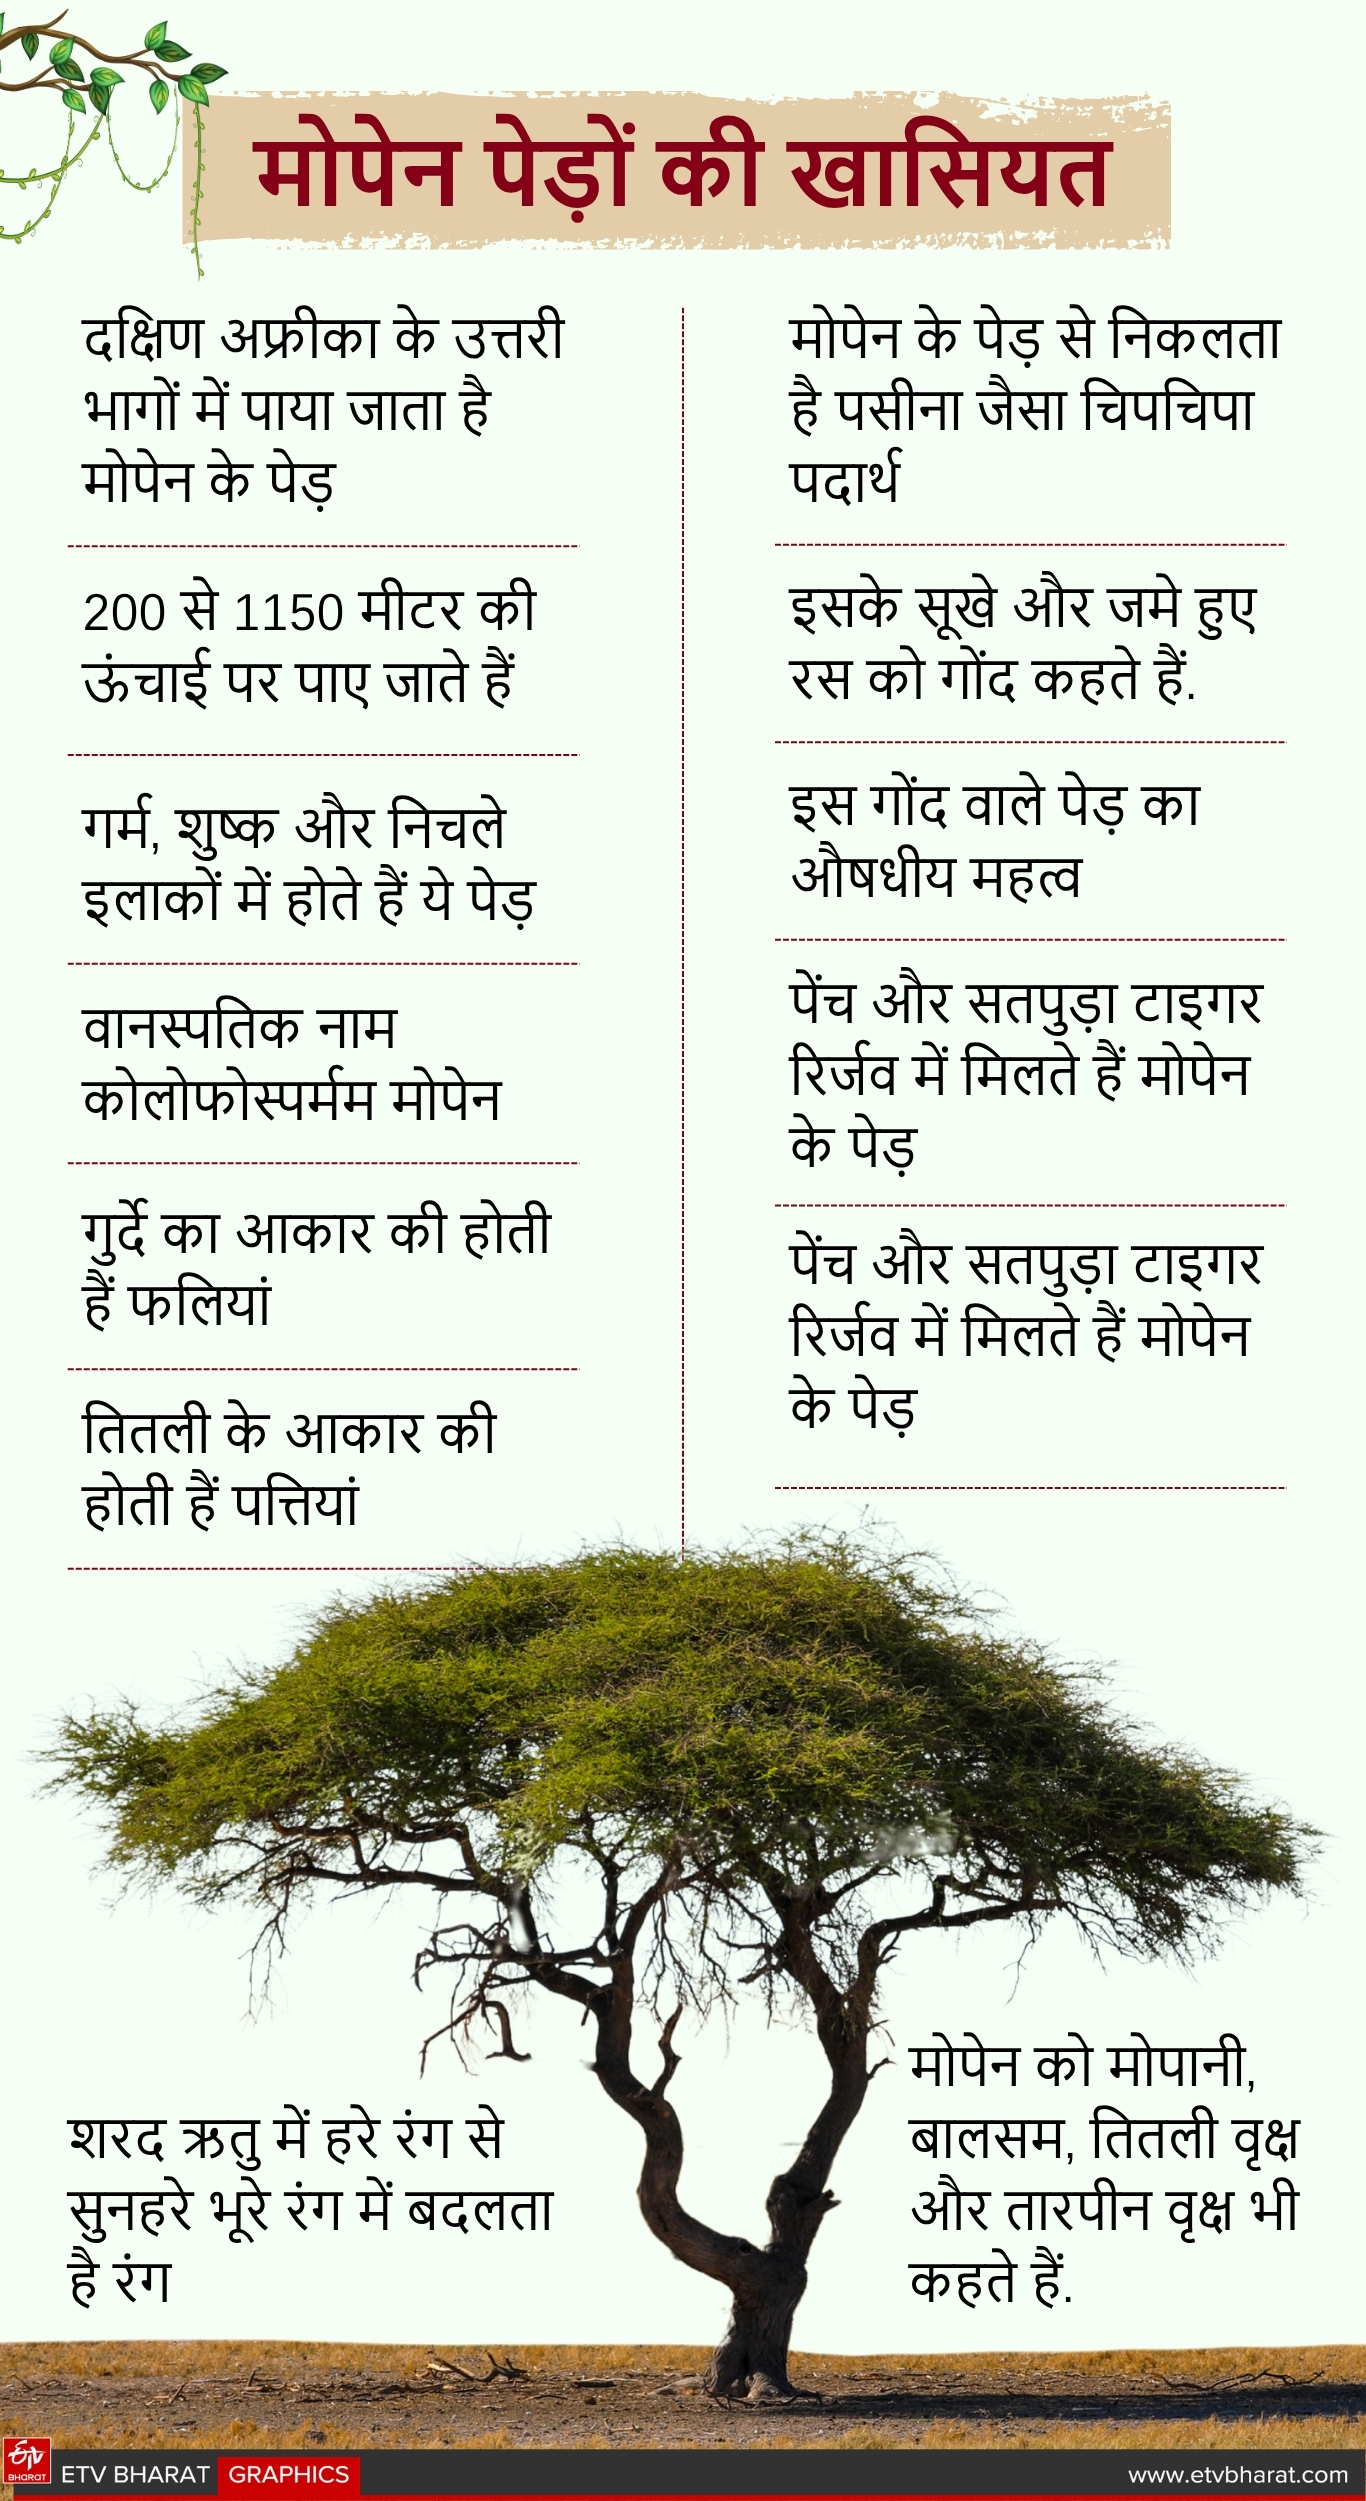 मोपेन पेड़ों की खासियत
दक्षिण अफ्रीका के उत्तरी
भागों में पाया जाता है
मोपेन के पेड़
200 से 1150 मीटर की
ऊंचाई पर पाए जाते हैं
गर्म, शुष्क और निचले
इलाकों में होते हैं ये पेड़
वानस्पतिक नाम
कोलोफोस्पर्मम मोपेन
गुर्दे का आकार की होती
हैं फलियां
तितली के आकार की
होती हैं पत्तियां
मोपेन के पेड़ से निकलता
है पसीना जैसा चिपचिपा
पदार्थ
इसके सूखे और जमे हुए
रस को गोंद कहते हैं.
इस गोंद वाले पेड़ का
औषधीय महत्व
पेंच और सतपुड़ा टाइगर
रिर्जव में मिलते हैं मोपेन
के पेड़
पेंच और सतपुड़ा टाइगर
रिर्जव में मिलते हैं मोपेन
के पेड़
शरद ऋतु में हरे रंग से
सुनहरे भूरे रंग में बदलता
है रंग
मोपेन को मोपानी,
बालसम, तितली वृक्ष
और तारपीन वृक्ष भी
कहते हैं.
ETV BHARAT
ETV BHARAT GRAPHICS
www.etvbharat.com